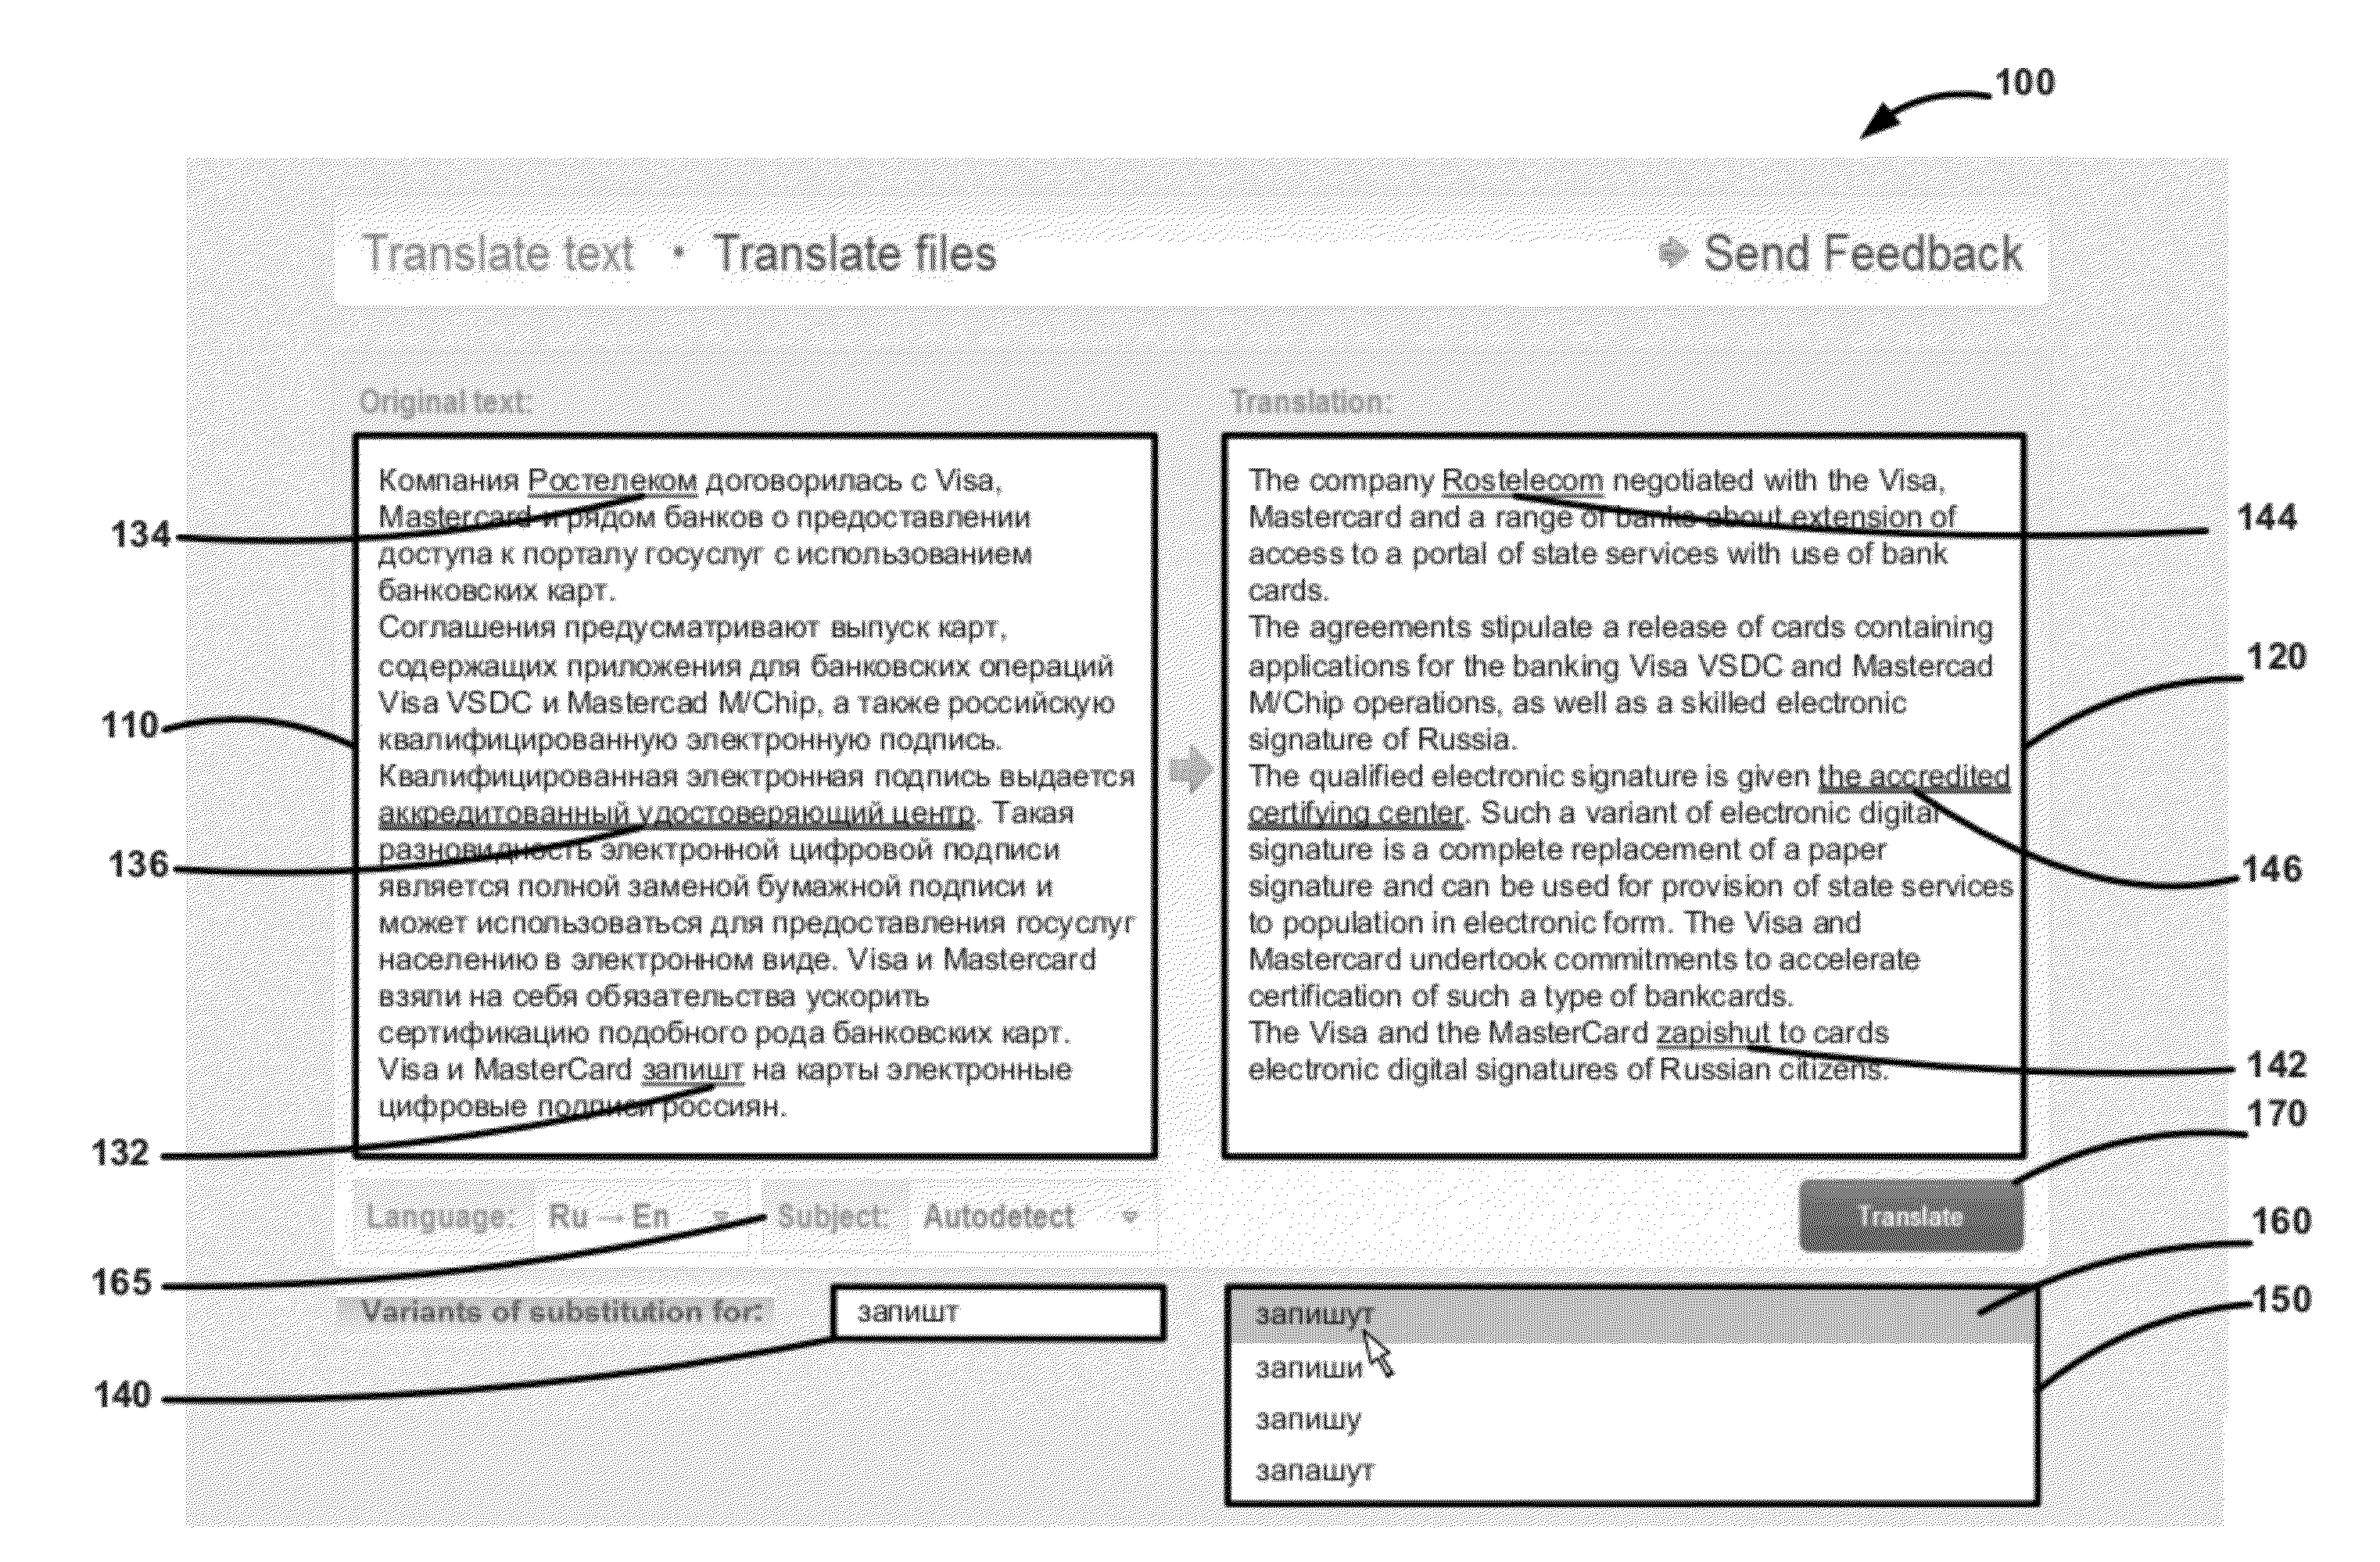 100
Translate text • Translate files
Send Feedback
Original text:
Translation:
Компания Ростелеком договорилась с Visa,
Mastercard и рядом банков о предоставлении
доступа к порталу госуслуг с использованием
банковских карт.
Соглашения предусматривают выпуск карт,
содержащих приложения для банковских операций
Visa VSDC и Mastercad M/Chip, а также российскую
квалифицированную электронную подпись.
Квалифицированная электронная подпись выдается
аккредитованный удостоверяющий центр. Такая
разновидность электронной цифровой подписи
является полной заменой бумажной подписи и
может использоваться для предоставления госуслуг
населению в электронном виде. Visa и Mastercard
взяли на себя обязательства ускорить
сертификацию подобного рода банковских карт.
Visa и MasterCard запишт на карты электронные
цифровые подписи россиян.
The company Rostelecom negotiated with the Visa,
Mastercard and a range of banks about extension of
access to a portal of state services with use of bank
cards.
The agreements stipulate a release of cards containing
applications for the banking Visa VSDC and Mastercad
M/Chip operations, as well as a skilled electronic
signature of Russia.
The qualified electronic signature is given the accredited
certifying center. Such a variant of electronic digital
signature is a complete replacement of a paper
signature and can be used for provision of state services
to population in electronic form. The Visa and
Mastercard undertook commitments to accelerate
certification of such a type of bankcards.
The Visa and the MasterCard zapishut to cards
electronic digital signatures of Russian citizens.
134
110
136
132
165
140
144
120
146
142
170
160
150
Language: Ru → En
Subject: Autodetect
Translate
Variants of substitution for: запишт
запишут
запиши
запишу
запашут